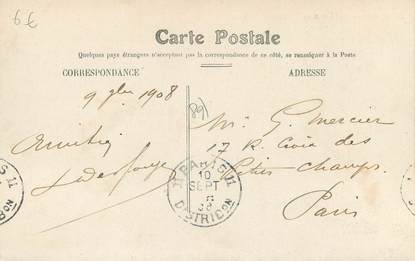 6€
Carte Postale
Quelques pays étrangers n'acceptant pas la correspondance de ce côté, se renseigner à la Poste.
CORRESPONDANCE
ADRESSE
9 7bre 1908
(89)
Amitiés
Mr G. Mercier
17 R. Croix des
Petits Champs.
Paris
PARIS 11
10
SEPT
08
DISTRIBON